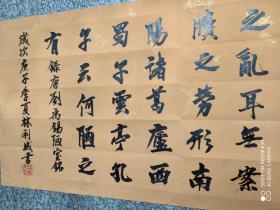 之亂耳無案
牘之勞形南
陽諸葛廬西
蜀子雲亭孔
子云何陋之
有錄唐劉禹錫陋室銘
歲次庚子季夏林利成書
AI QUAD CAMERA